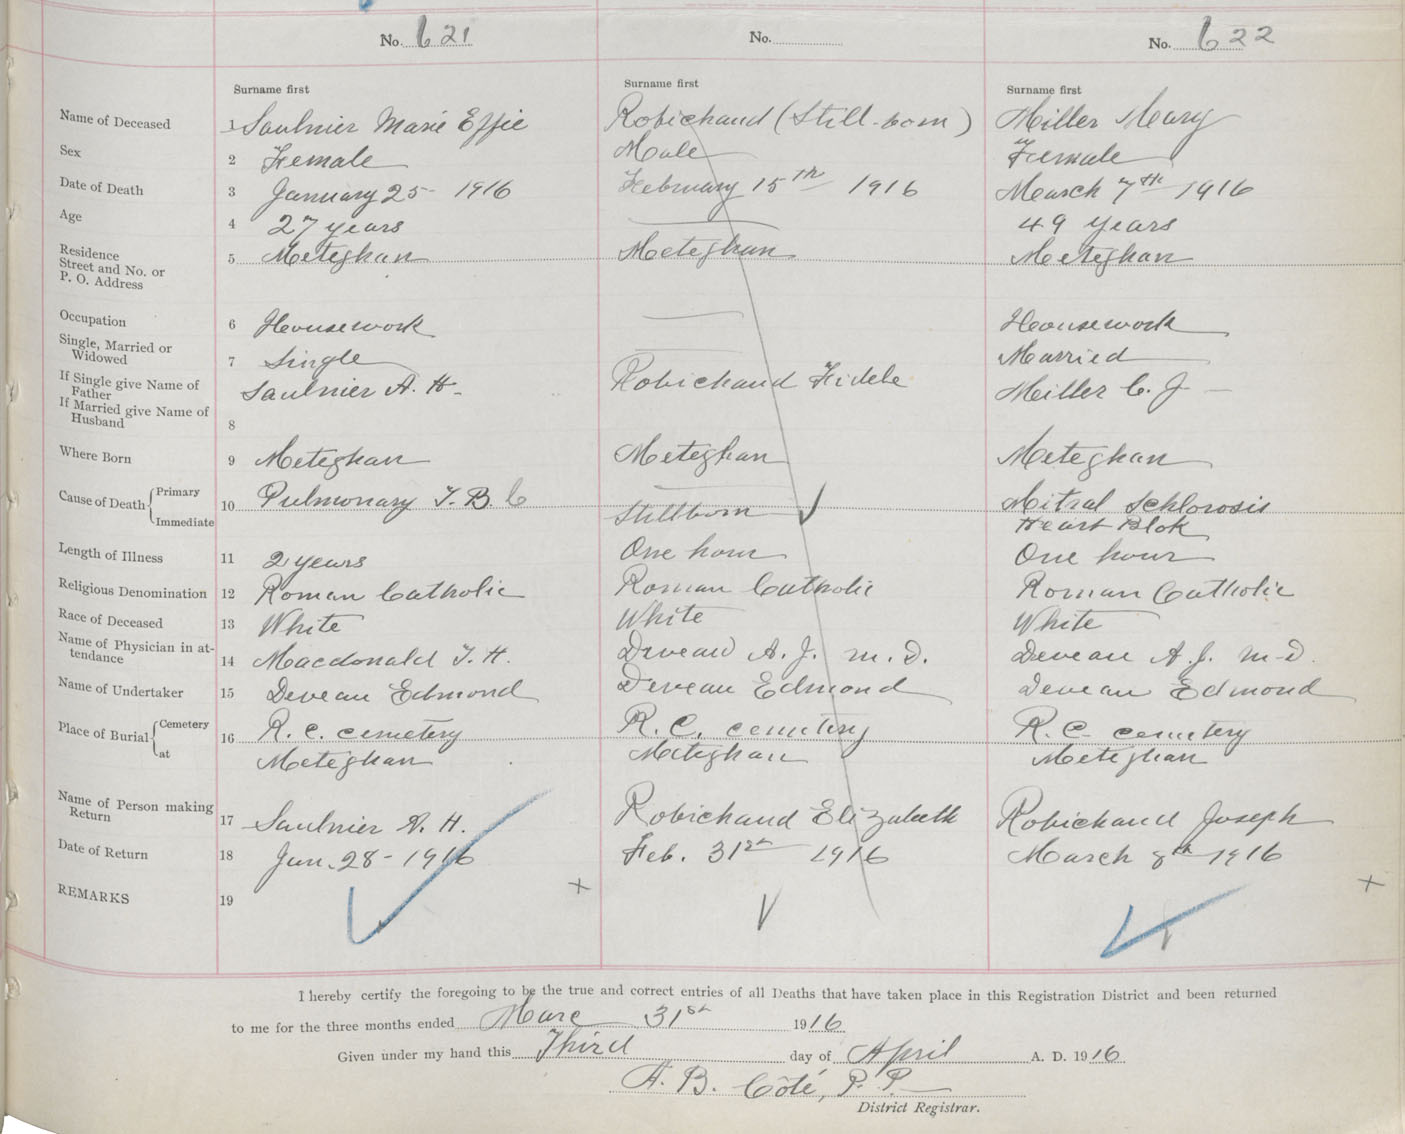 No. 621 No. No. 622
Surname first Surname first Surname first
Name of Deceased 1 Saulnier Marie Effie Robichaud (Still-born) Miller Mary
Sex 2 Female Male Female
Date of Death 3 January 25 - 1916 February 15th 1916 March 7th 1916
Age 4 27 years 49 years
Residence
Street and No. or
P. O. Address
5 Meteghan Meteghan Meteghan
Occupation 6 Housework Housework
Single, Married or
Widowed
7 Single Married
If Single give Name of
Father
Saulnier A. H. Robichaud Fidele Miller C. J.
If Married give Name of
Husband
8
Where Born 9 Meteghan Meteghan Meteghan
Cause of Death Primary
Immediate
10 Pulmonary T. B. C Stillborn Mitral Schlorosis
Heart Blok
Length of Illness 11 2 years One hour One hour
Religious Denomination 12 Roman Catholic Roman Catholic Roman Catholic
Race of Deceased 13 White White White
Name of Physician in at-
tendance
14 Macdonald T. H. Deveau A. J. M. D. Deveau A. J. M-D.
Name of Undertaker 15 Deveau Edmond Deveau Edmond Deveau Edmond
Place of Burial Cemetery
at
16 R. C. cemetery R. C. cemetery R. C. cemetery
Meteghan Meteghan Meteghan
Name of Person making
Return
17 Saulnier A. H. Robichaud Elizabeth Robichaud Joseph
Date of Return 18 Jan. 28 - 1916 Feb. 31st 1916 March 8th 1916
REMARKS 19
I hereby certify the foregoing to be the true and correct entries of all Deaths that have taken place in this Registration District and been returned
to me for the three months ended Marc 31st 1916
Given under my hand this Third day of April A. D. 1916
A. B. Côté, P. P.
District Registrar.